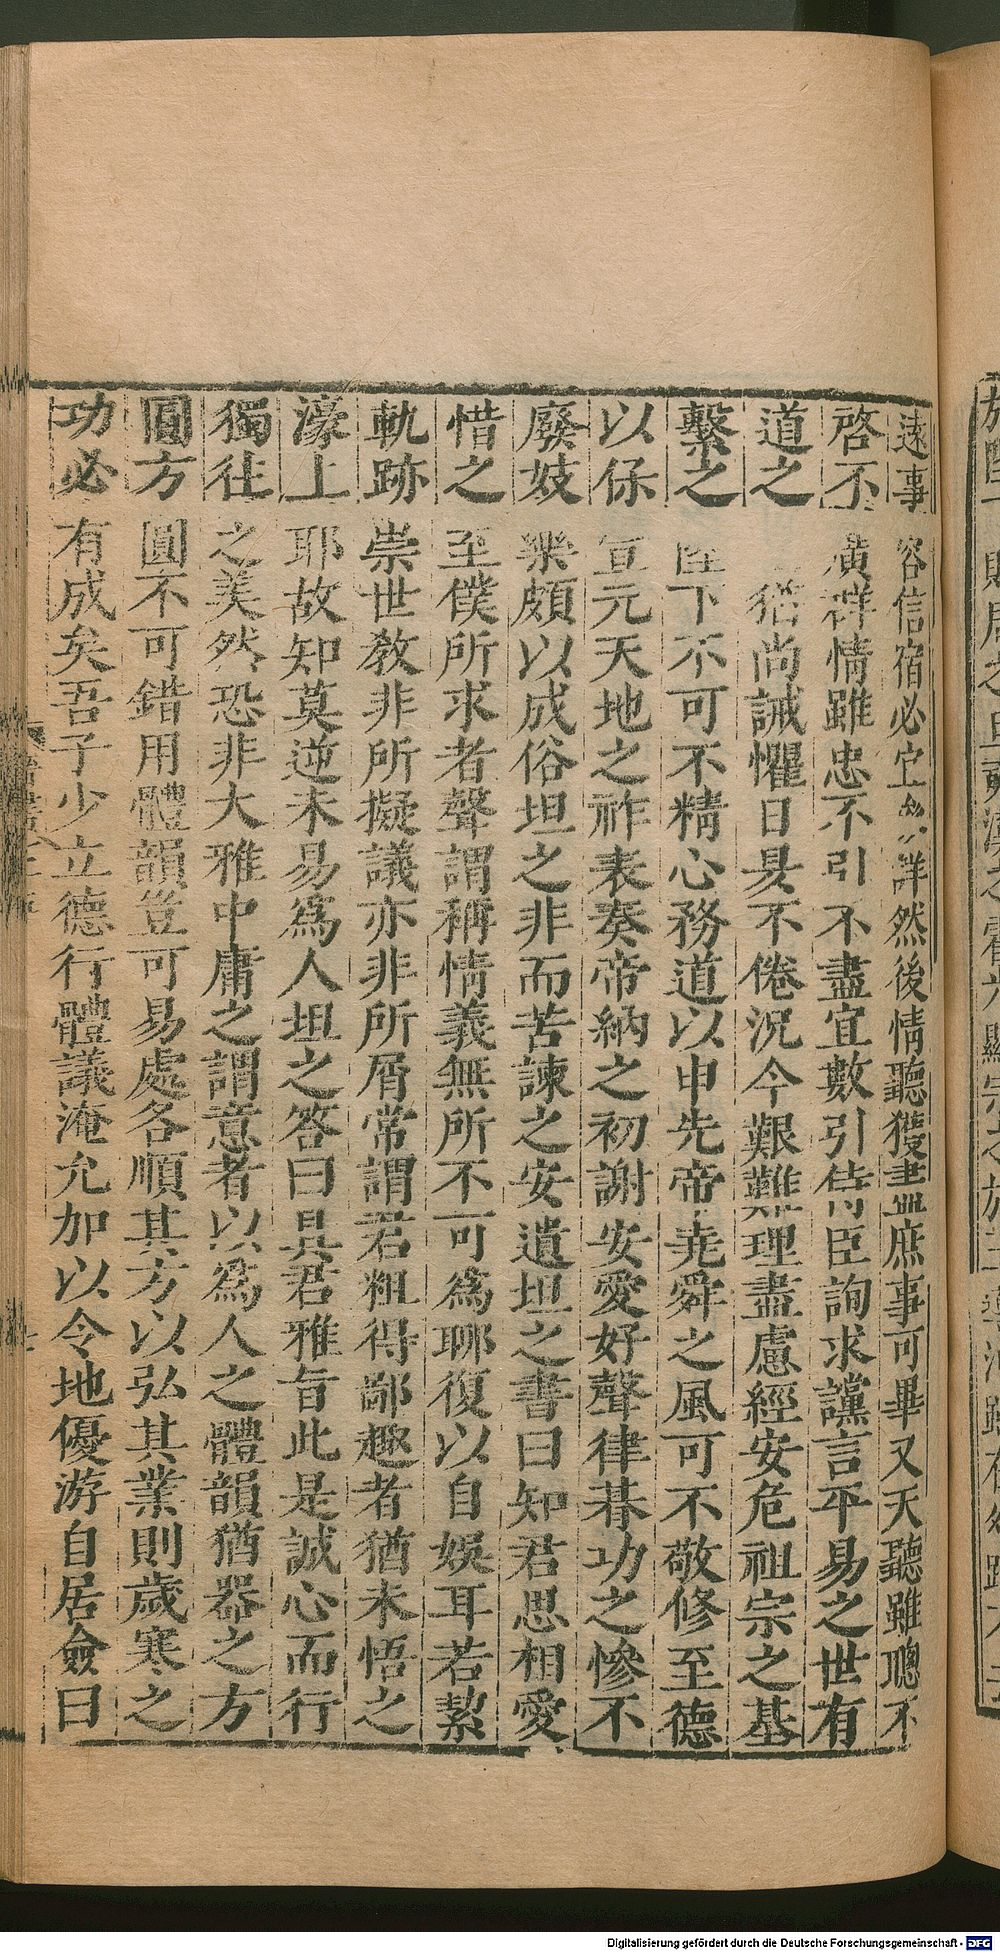 遠事容信宿必宜詳然後情聽獲盡庶事可畢又天聽雖聰不
啓不廣群情雖忠不引不盡宜數引侍臣詢求讜言平易之世有
道之猶尚誡懼日昃不倦況今艱難理盡慮經安危祖宗之基
繫之陛下不可不精心務道以申先帝堯舜之風可不敬修至德
以保宣元天地之祚表奏帝納之初謝安愛好聲律朞功之慘不
廢妓樂頗以成俗坦之非而苦諫之安遺坦之書曰知君思相愛
惜之至僕所求者聲謂稱情義無所不可爲聊復以自娛耳若絜
軌跡崇世教非所擬議亦非所屑常謂君粗得鄙趣者猶未悟之
濠上耶故知莫逆未易爲人坦之答曰具君雅旨此是誠心而行
獨往之美然恐非大雅中庸之謂意者以爲人之體韻猶器之方
圓方圓不可錯用體韻豈可易處各順其方以弘其業則歲寒之
功必有成矣吾子少立德行體議淹允加以令地優游自居僉曰
Digitalisierung gefördert durch die Deutsche Forschungsgemeinschaft - DFG